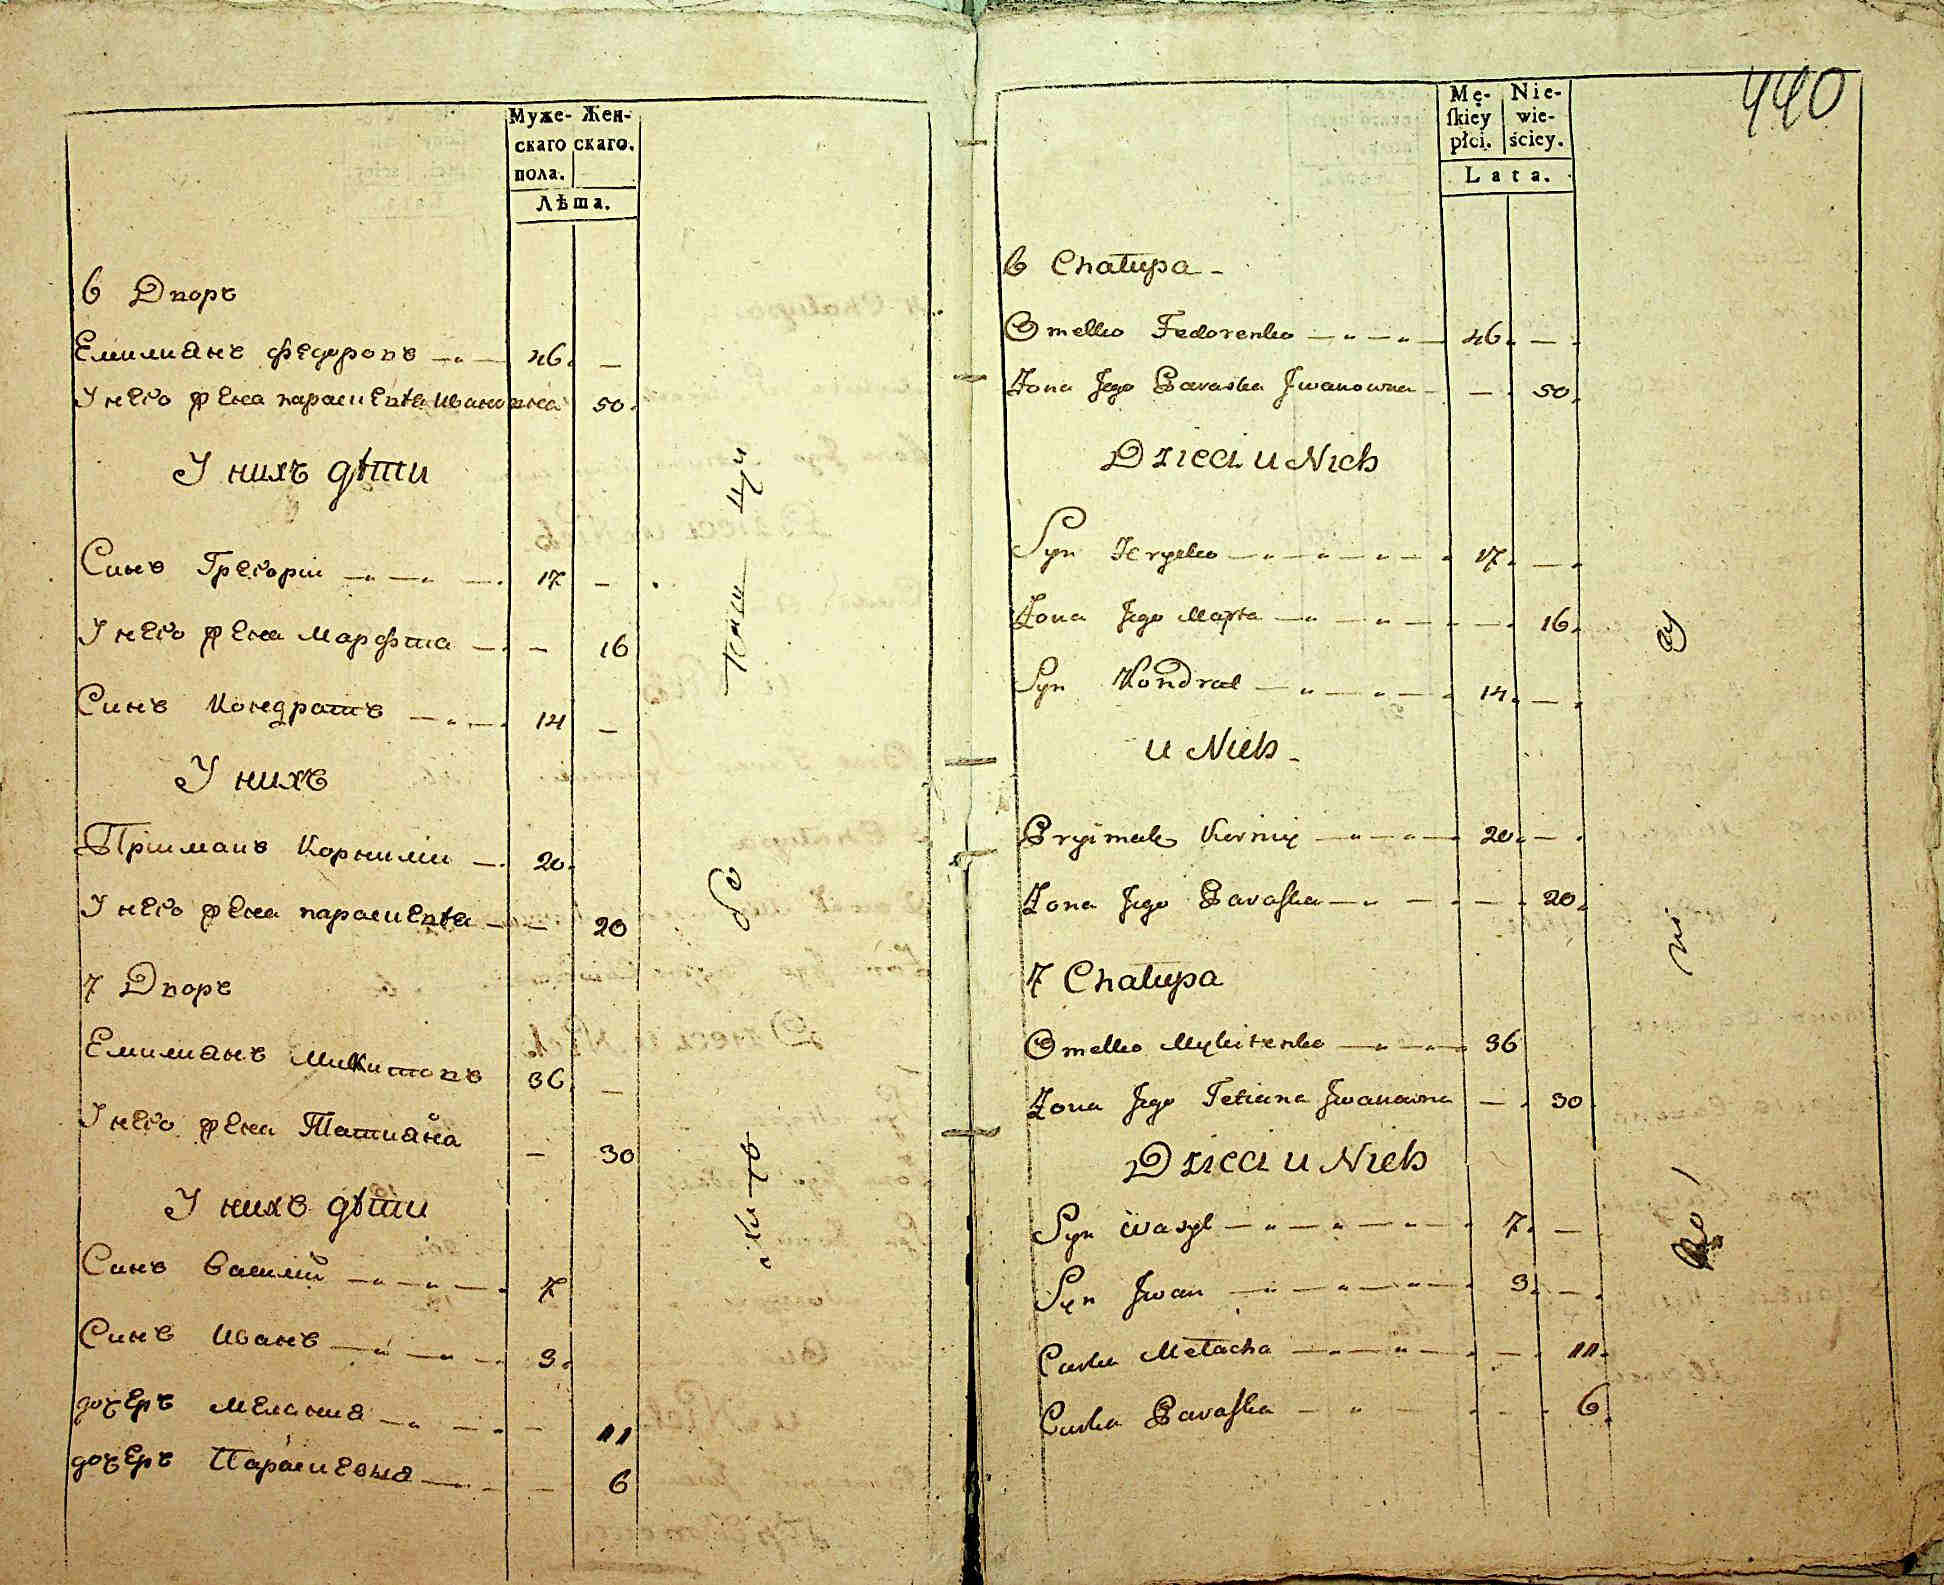 Муже- Жен-
скаго скаго.
пола.
Лѣта.
6 Дворъ
Емилианъ Федоровъ 46. —
У него жена параскевіа Ивановна 50.
У нихъ дѣти
Синъ Григорій 17 —
У него жена Марфта — 16
Синъ Кондратъ 14 —
У нихъ
Пріимакъ Корнилій 20.
У него жена параскевіа — 20
7 Дворъ
Емилианъ Микитовъ 36. —
У него жена Татиана — 30
У нихъ дѣти
Синъ Василій 7
Синъ Иванъ 3.
дочеръ Мелания — 11
дочеръ Параскевия — 6
440
Mę- Nie-
ſkiey wie-
płci. ściey.
Lata.
6 Chałupa
Omelko Fedorenko 46. —
Żona Jego Paraska Jwanowna — 50.
Dzieci u Nich
Syn Hryćko 17. —
Żona Jego Marta — 16.
Syn Kondrat 14. —
u Nich
Pryimak Korniy 20. —
Żona Jego Paraſka — 20.
7 Chałupa
Omelko Mykitenko 36
Żona Jego Tetiana Jwanowna — 30
Dzieci u Nich
Syn Wasyl 7. —
Syn Jwan 3. —
Curka Melacha — 11.
Curka Paraſka — 6.